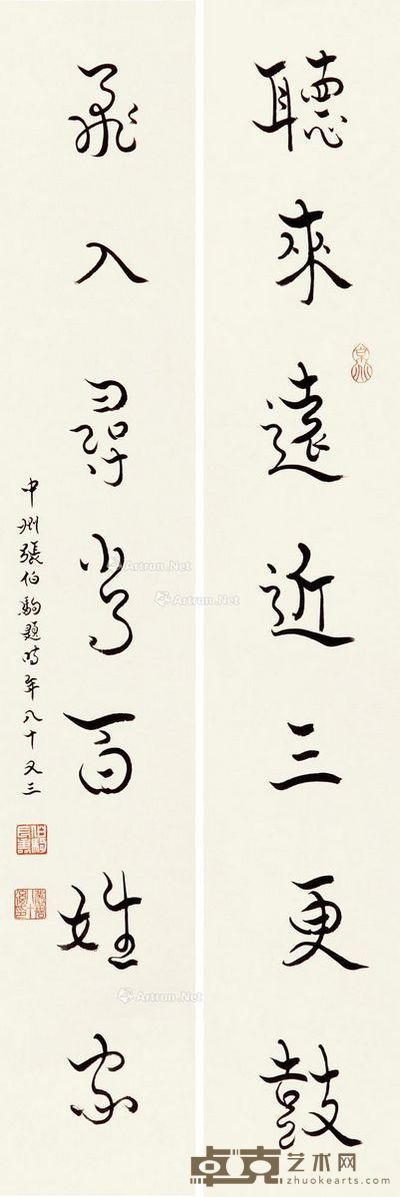 聽來遠近三更鼓
飛入尋常百姓家
中州張伯駒題時年八十又三
Artron.Net
Artron.Net
Artron.Net
卓克艺术网
www.zhuokearts.com